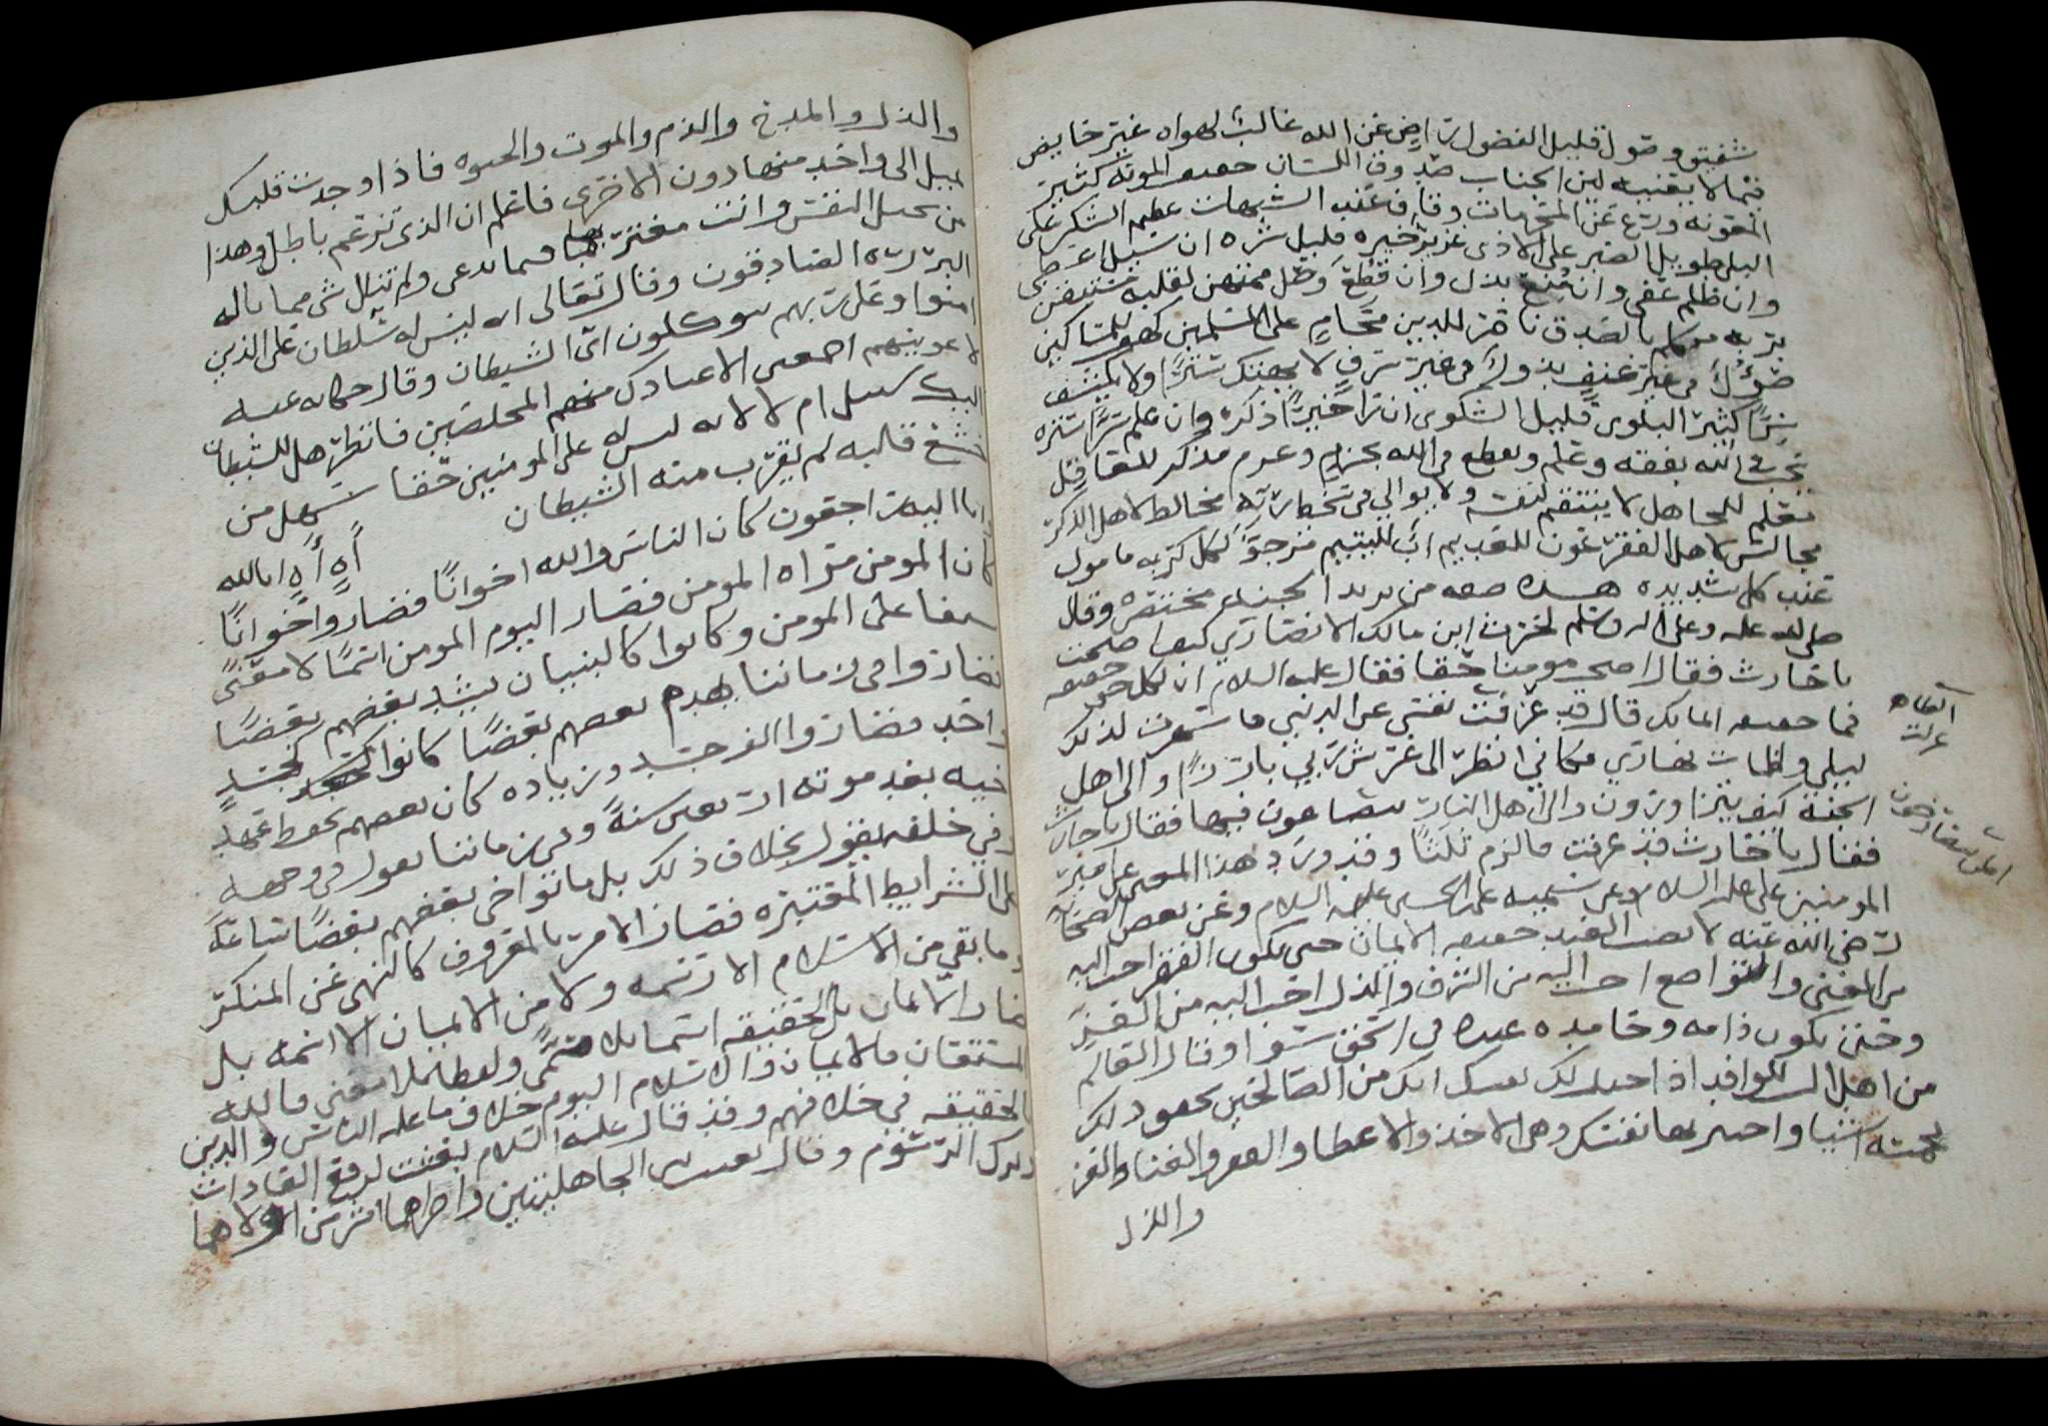 شفيق وصول قليل الفضول راض عن الله غالب لهواه غير خايض
فيما لا يعنيه لين الجناب صدوق اللسان خفيف المونه كثير
المعونه ورع عن المحرمات وقاف عند الشبهات عظيم الشكر على
البلى طويل الصبر على الاذى عزيز خيره قليل شره ان سيل اعطى
وان ظلم عفى وان منع بذل وان قطع وصل
بالصدق ناصر للدين محام على المسلمين كهف للمساكين
من غير عنف بذول في غير سرف لا يهتك سترا ولا يكشف
سرا كثير البلوى قليل الشكوى ان را خيرا ذكره وان علم شرا ستره
الله بفقه وعلم ويعطي في الله بحزم وعزم مذكر للعاقل
معلم للجاهل لا ينتقم لنفسه ولا يوالي في سخط ربه مخالط لاهل الذكر
مجالس لاهل الفقر عون للغريم اب لليتيم مرجو لكل كربه مامول
عند كل شديده هذه صفه من يريد الجنه مختصره وقال
صلى الله عليه وعلى اله وسلم لحرث ابن مالك الانصاري كيف اصبحت
يا حارث فقال اصبحت مومنا حقا فقال عليه السلام ان لكل حق حقيقه
فما حقيقه ايمانك قال قد عزفت نفسي عن الدنيا فاسهرت لذلك
ليلي واظمات نهاري فكاني انظر الى عرش ربي بارزا والى اهل
الجنه كيف يتزاورون والى اهل النار يتضاغون فيها فقال يا حارث
فقال يا حارث قد عرفت فالزم ثلثا وقد ورد هذا المعنى عن امير
المومنين علي عليه السلام وعن سميه علي ابن الحسين عليهما السلام وعن بعض الصحابه
رضي الله عنه لا يصيب العبد حقيقه الايمان حتى يكون الفقر احب اليه
من الغنى والتواضع احب اليه من الشرف والذل احب اليه من العز
وحتى يكون ذامه وحامده عنده في الحق سوا وقال العالم
من اهل السلوك فاذا احلت لك نفسك انك من الصالحين بحقيق ذلك
بخمسه اشيا واختبر بها نفسك وهي الاخذ والاعطا والفقر والغنا والعز
والذل
والذل والمدح والذم والموت والحيوه فاذا وجدت قلبك
يميل الى واحد منها دون الاخرى فاعلم ان الذي تزعم باطل وهذا
من حيل النفس وانت مغتر بها فيما تدعي ولم تنال شي مما ناله
البرره الصادقون وقال تعالى انه ليس له سلطان على الذين
امنوا وعلى ربهم يتوكلون اي الشيطان وقال حكايه عنه
لاغوينهم اجمعين الا عبادك منهم المخلصين فانظر هل للشيطان
اليك سبيل ام لا لانه ليس له على المومنين حقا سهل من
خشع قلبه لم يقرب منه الشيطان
اه اه انا لله
وانا اليه راجعون كان الناس والله اخوانا فصاروا خوانا
كان المومن مراه المومن فصار اليوم المومن اسما لا معنى
سيفا على المومن وكانوا كالبنيان يشد بعضهم بعضا
فصاروا في زماننا يهدم بعضهم بعضا كانوا كجسد
واحد فصاروا الف جسد وزياده كان بعضهم يحفظ عهد
اخيه بعد موته اربعين سنه وفي زماننا يقول في وجهه
وفي خلفه يقول بخلاف ذلك بل ما تواخى بعضهم بعضا ساعه
على الشرايط المعتبره فصار الامر بالمعروف كالنهي عن المنكر
وما بقي من الاسلام الا رسمه ولا من الايمان الا اسمه بل
صار الايمان بل الحقيقه اسما بلا مسمى ولفظا بلا معنى فالله
المستعان فالايمان والاسلام اليوم خلاف ما عليه الناس والدين
الحقيقه في خلافهم وقد قال عليه السلام بعثت لرفع العادات
وترك الرسوم وقال بعثت بين الجاهليتين واخراهما اشر من اولاهما